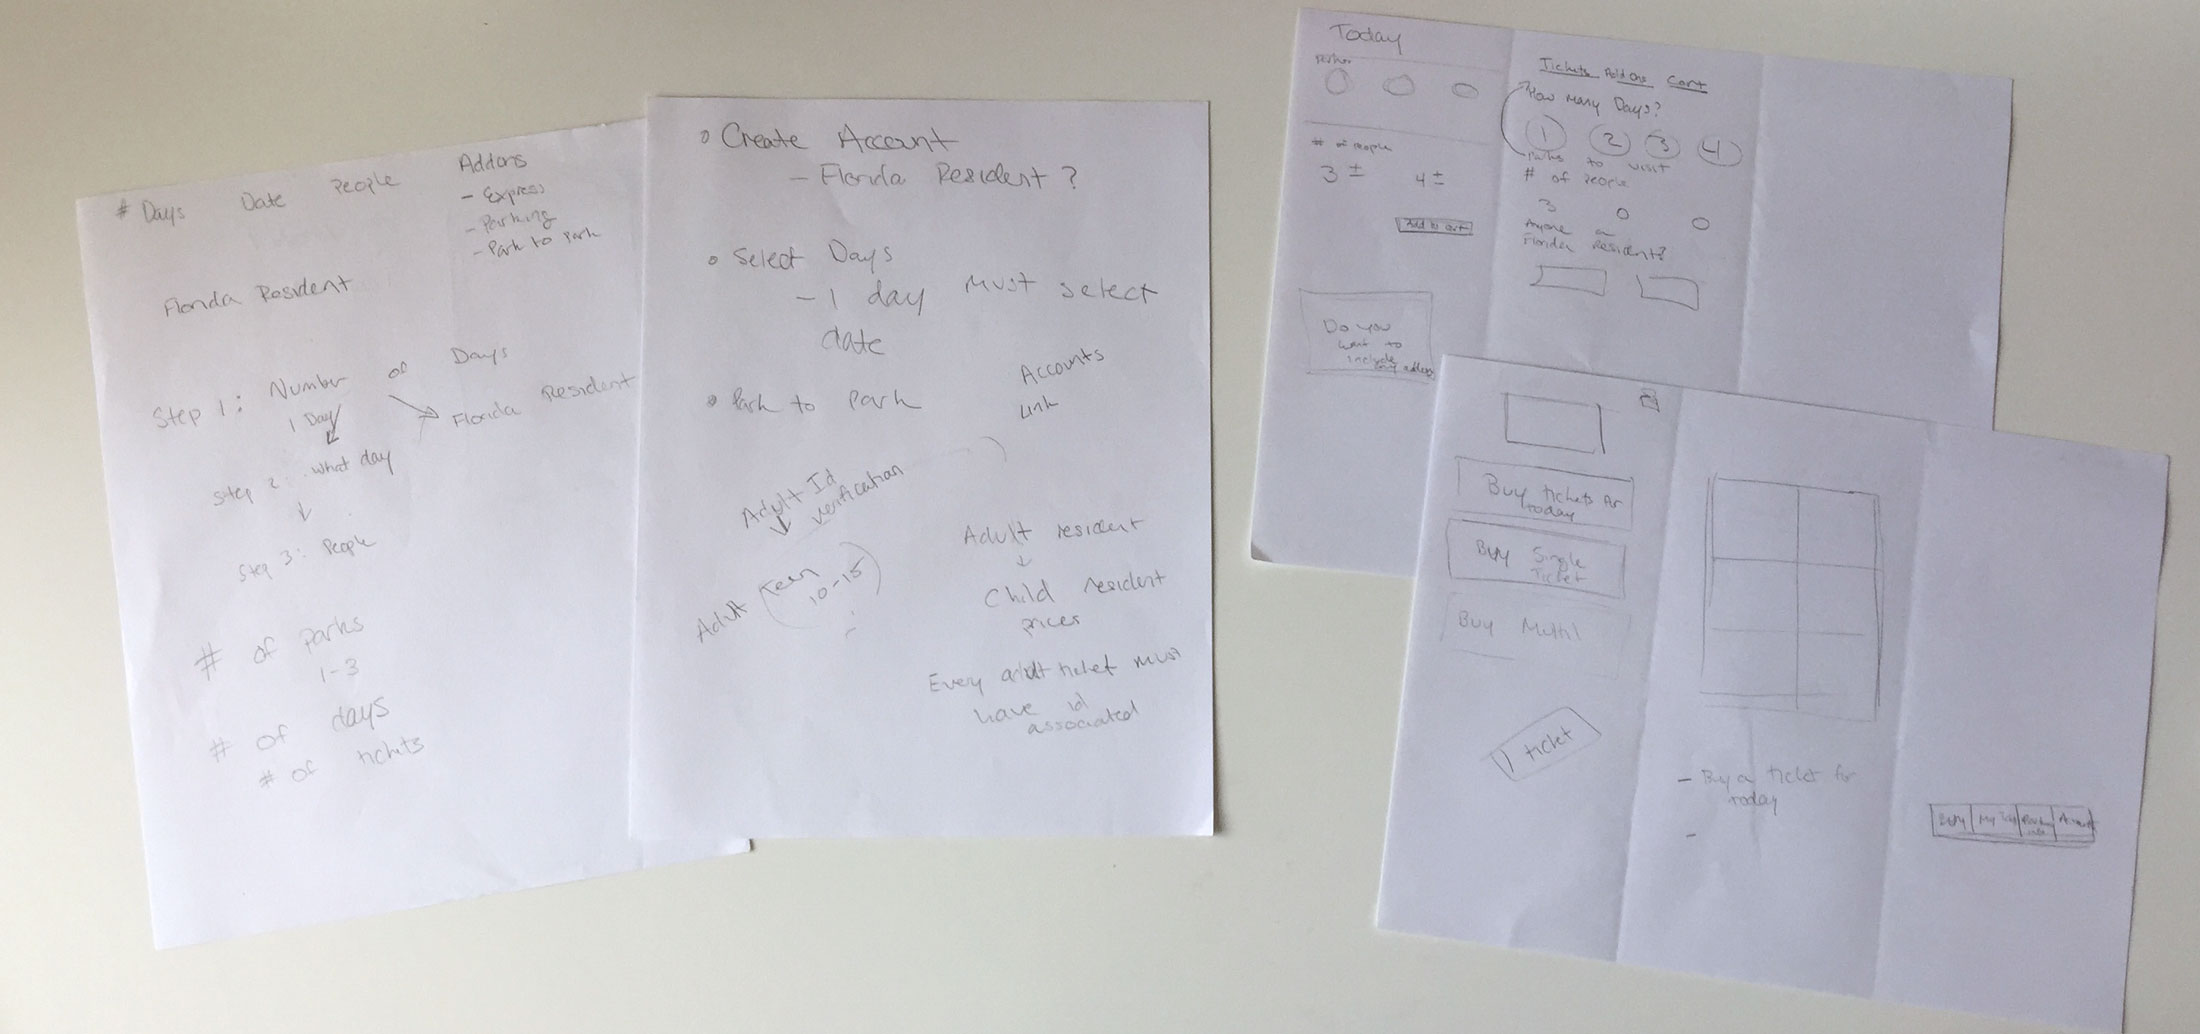 # Days Date People Addons
- Express
- Parking
- Park to Park
Florida Resident
Step 1: Number of Days
1 Day
Florida Resident
Step 2: what day
Step 3: People
# of parks
1-3
# of days
# of tickets
Create Account
- Florida Resident?
Select Days
- 1 day must select
date
Park to Park
Accounts
Link
Adult Id
verification
Adult Teen
10-15
Adult resident
Child resident
prices
Every adult ticket must
have id
associated
Today
# of people
3 ± 4 ±
Add to cart
Do you
want to
include
any addons
Tickets Add Ons Cart
How Many Days?
1 2 3 4
Parks to visit
# of people
3
Anyone a
Florida resident?
Buy tickets for
today
Buy Single
Ticket
Buy Multi
1 ticket
- Buy a ticket for
today
-
Buy